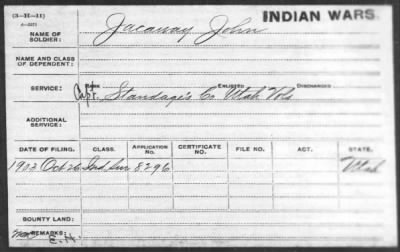 (3-II-11)
INDIAN WARS
NAME OF SOLDIER: Jacaway John
NAME AND CLASS OF DEPENDENT:
SERVICE: RANK ENLISTED DISCHARGED
Capt. Standage's Co Utah Vols
ADDITIONAL SERVICE:
DATE OF FILING. CLASS. APPLICATION NO. CERTIFICATE NO. FILE NO. ACT. STATE.
1903 Oct 26 Ind Sur 8296 Utah
BOUNTY LAND:
REMARKS: E.H.